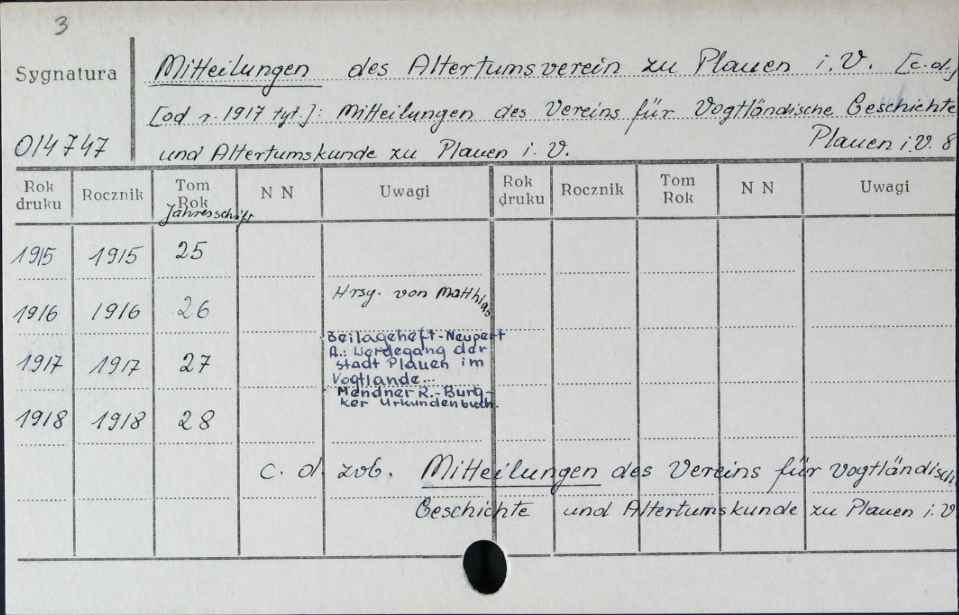 3
Sygnatura
Mitteilungen des Altertumsverein zu Plauen i.V. [c.d.]
[od r. 1917 tyt.]: Mitteilungen des Vereins für Vogtländische Geschichte
014747
und Altertumskunde zu Plauen i.V. Plauen i.V. 8
Rok druku Rocznik Tom Rok N N Uwagi Rok druku Rocznik Tom Rok N N Uwagi
Jahresschift
1915 1915 25
1916 1916 26 Hrsg. von Matthias
Beilageheft-Neupert
1917 1917 27 A.: Werdegang der
stadt Plauen im
Vogtlande...
Mendner R.-Burg-
ker Urkundenbuch.
1918 1918 28
c. d. zob. Mitteilungen des Vereins für Vogtländisch.
Geschichte und Altertumskunde zu Plauen i.V